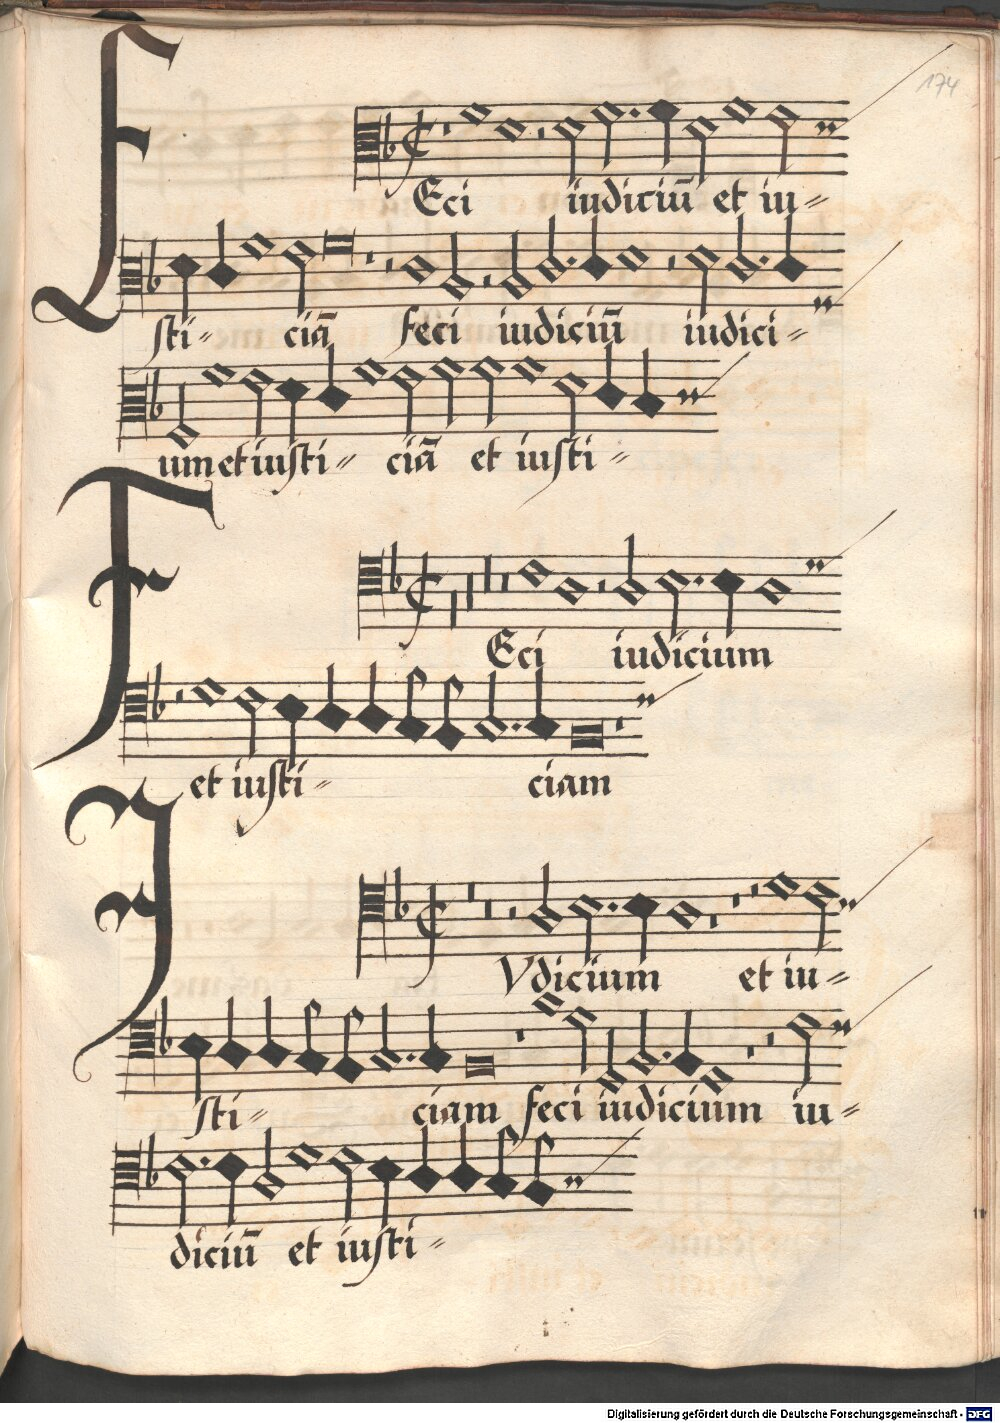 174
FEci iudiciū et iu-
sti- ciā feci iudiciū iudici-
um et iusti- ciā et iusti-
FEci iudicium
et iusti- ciam
IVdicium et iu-
sti- ciam feci iudicium iu-
diciū et iusti-
Digitalisierung gefördert durch die Deutsche Forschungsgemeinschaft - DFG